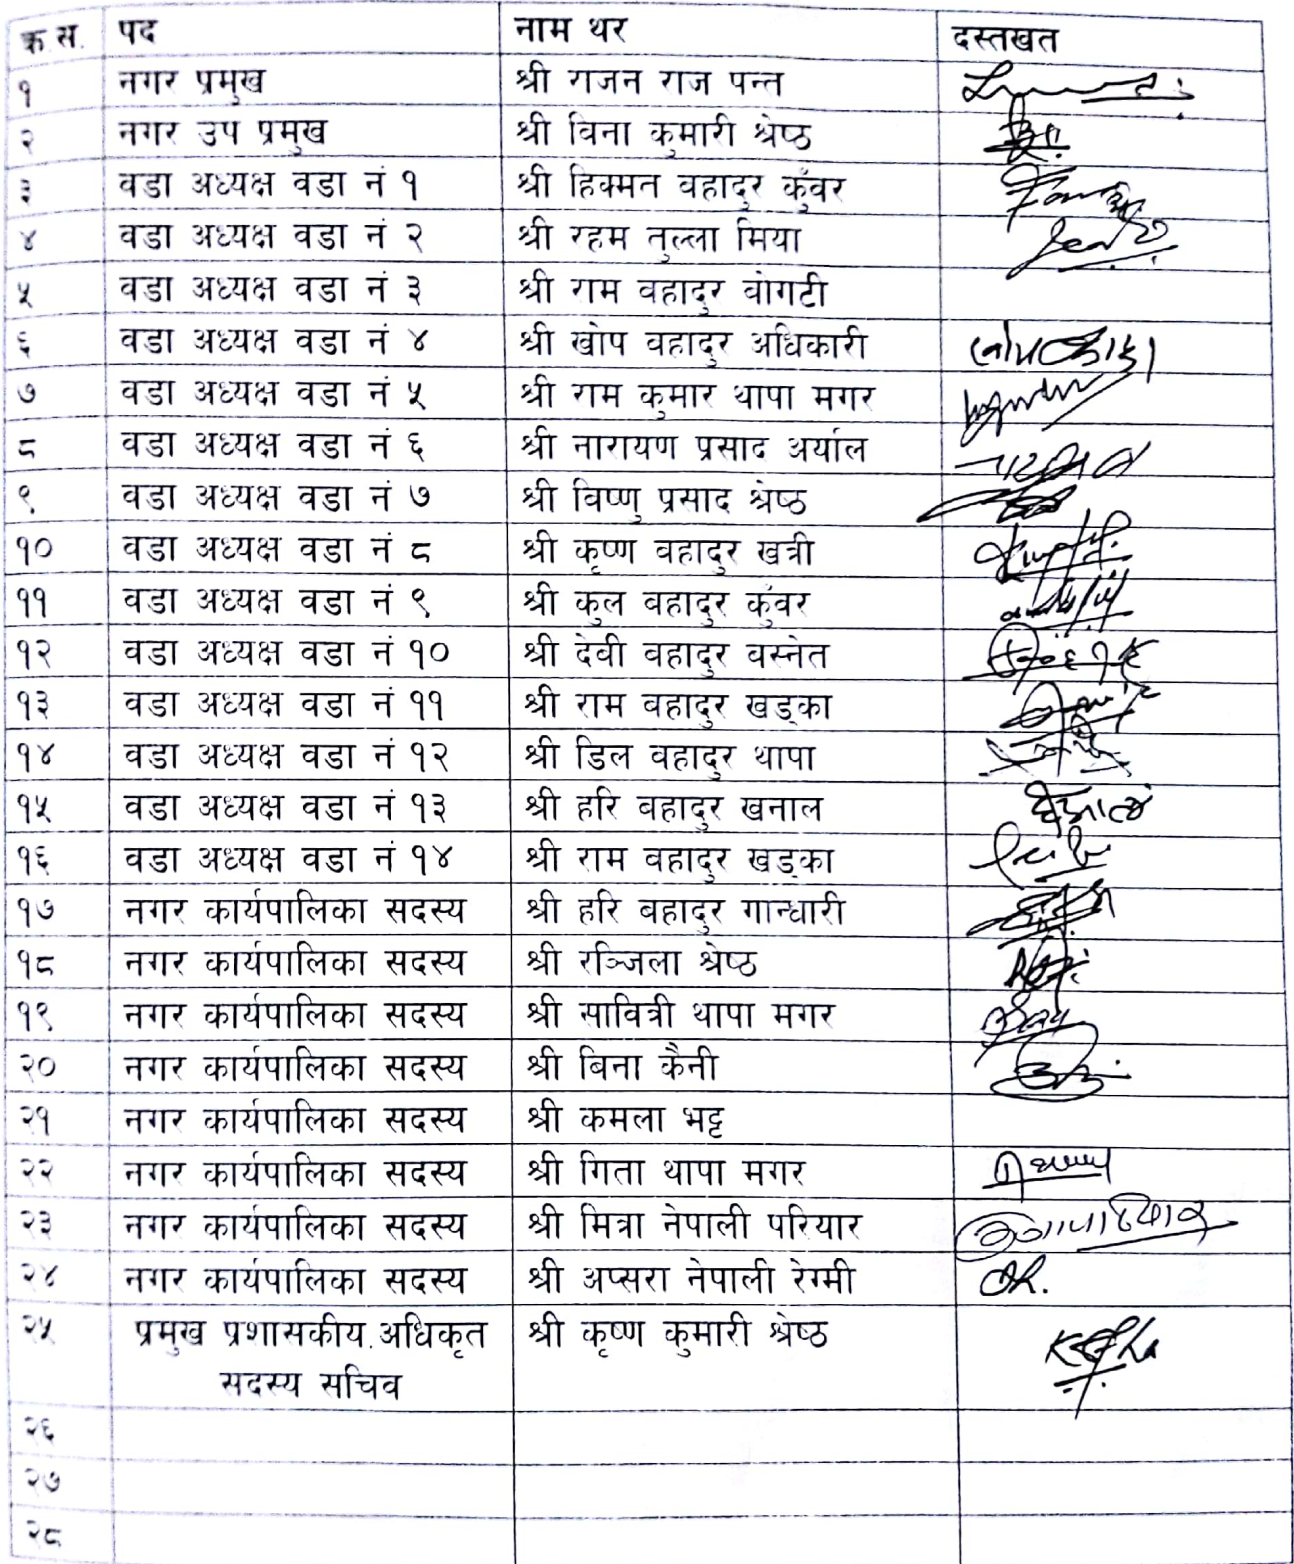 क्र स. पद नाम थर दस्तखत
१ नगर प्रमुख श्री राजन राज पन्त
२ नगर उप प्रमुख श्री विना कुमारी श्रेष्ठ
३ वडा अध्यक्ष वडा नं १ श्री हिक्मत वहादुर कुँवर
४ वडा अध्यक्ष वडा नं २ श्री रहम तुल्ला मिया
५ वडा अध्यक्ष वडा नं ३ श्री राम वहादुर वोगटी
६ वडा अध्यक्ष वडा नं ४ श्री खोप वहादुर अधिकारी
७ वडा अध्यक्ष वडा नं ५ श्री राम कुमार थापा मगर
८ वडा अध्यक्ष वडा नं ६ श्री नारायण प्रसाद अर्याल
९ वडा अध्यक्ष वडा नं ७ श्री विष्णु प्रसाद श्रेष्ठ
१० वडा अध्यक्ष वडा नं ८ श्री कृष्ण वहादुर खत्री
११ वडा अध्यक्ष वडा नं ९ श्री कुल वहादुर कुँवर
१२ वडा अध्यक्ष वडा नं १० श्री देवी वहादुर वस्नेत
१३ वडा अध्यक्ष वडा नं ११ श्री राम वहादुर खड्का
१४ वडा अध्यक्ष वडा नं १२ श्री डिल वहादुर थापा
१५ वडा अध्यक्ष वडा नं १३ श्री हरि वहादुर खनाल
१६ वडा अध्यक्ष वडा नं १४ श्री राम वहादुर खड्का
१७ नगर कार्यपालिका सदस्य श्री हरि वहादुर गान्धारी
१८ नगर कार्यपालिका सदस्य श्री रञ्जिला श्रेष्ठ
१९ नगर कार्यपालिका सदस्य श्री सावित्री थापा मगर
२० नगर कार्यपालिका सदस्य श्री बिना कैनी
२१ नगर कार्यपालिका सदस्य श्री कमला भट्ट
२२ नगर कार्यपालिका सदस्य श्री गिता थापा मगर
२३ नगर कार्यपालिका सदस्य श्री मित्रा नेपाली परियार
२४ नगर कार्यपालिका सदस्य श्री अप्सरा नेपाली रेग्मी
२५ प्रमुख प्रशासकीय अधिकृत श्री कृष्ण कुमारी श्रेष्ठ
सदस्य सचिव
२६
२७
२८